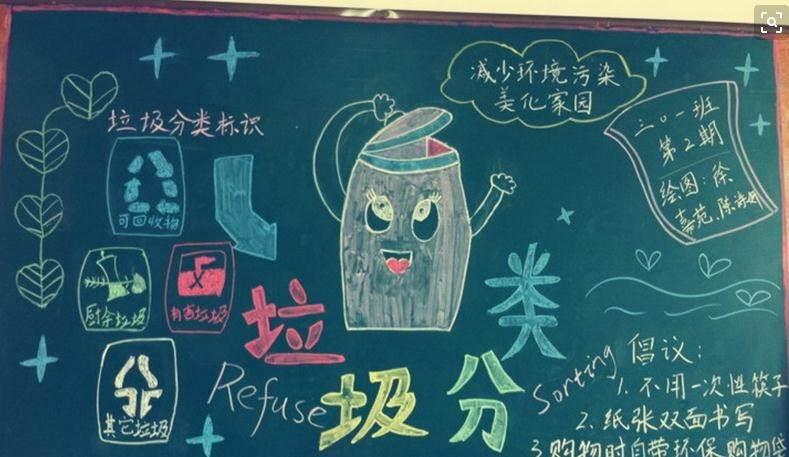 减少环境污染
美化家园
三〇一班
第2期
绘图:徐
嘉苑、陈诗
垃圾分类标识
可回收物
厨余垃圾
有害垃圾
其它垃圾
垃圾分类
Refuse Sorting
倡议:
1. 不用一次性筷子
2. 纸张双面书写
3. 购物时自带环保购物袋